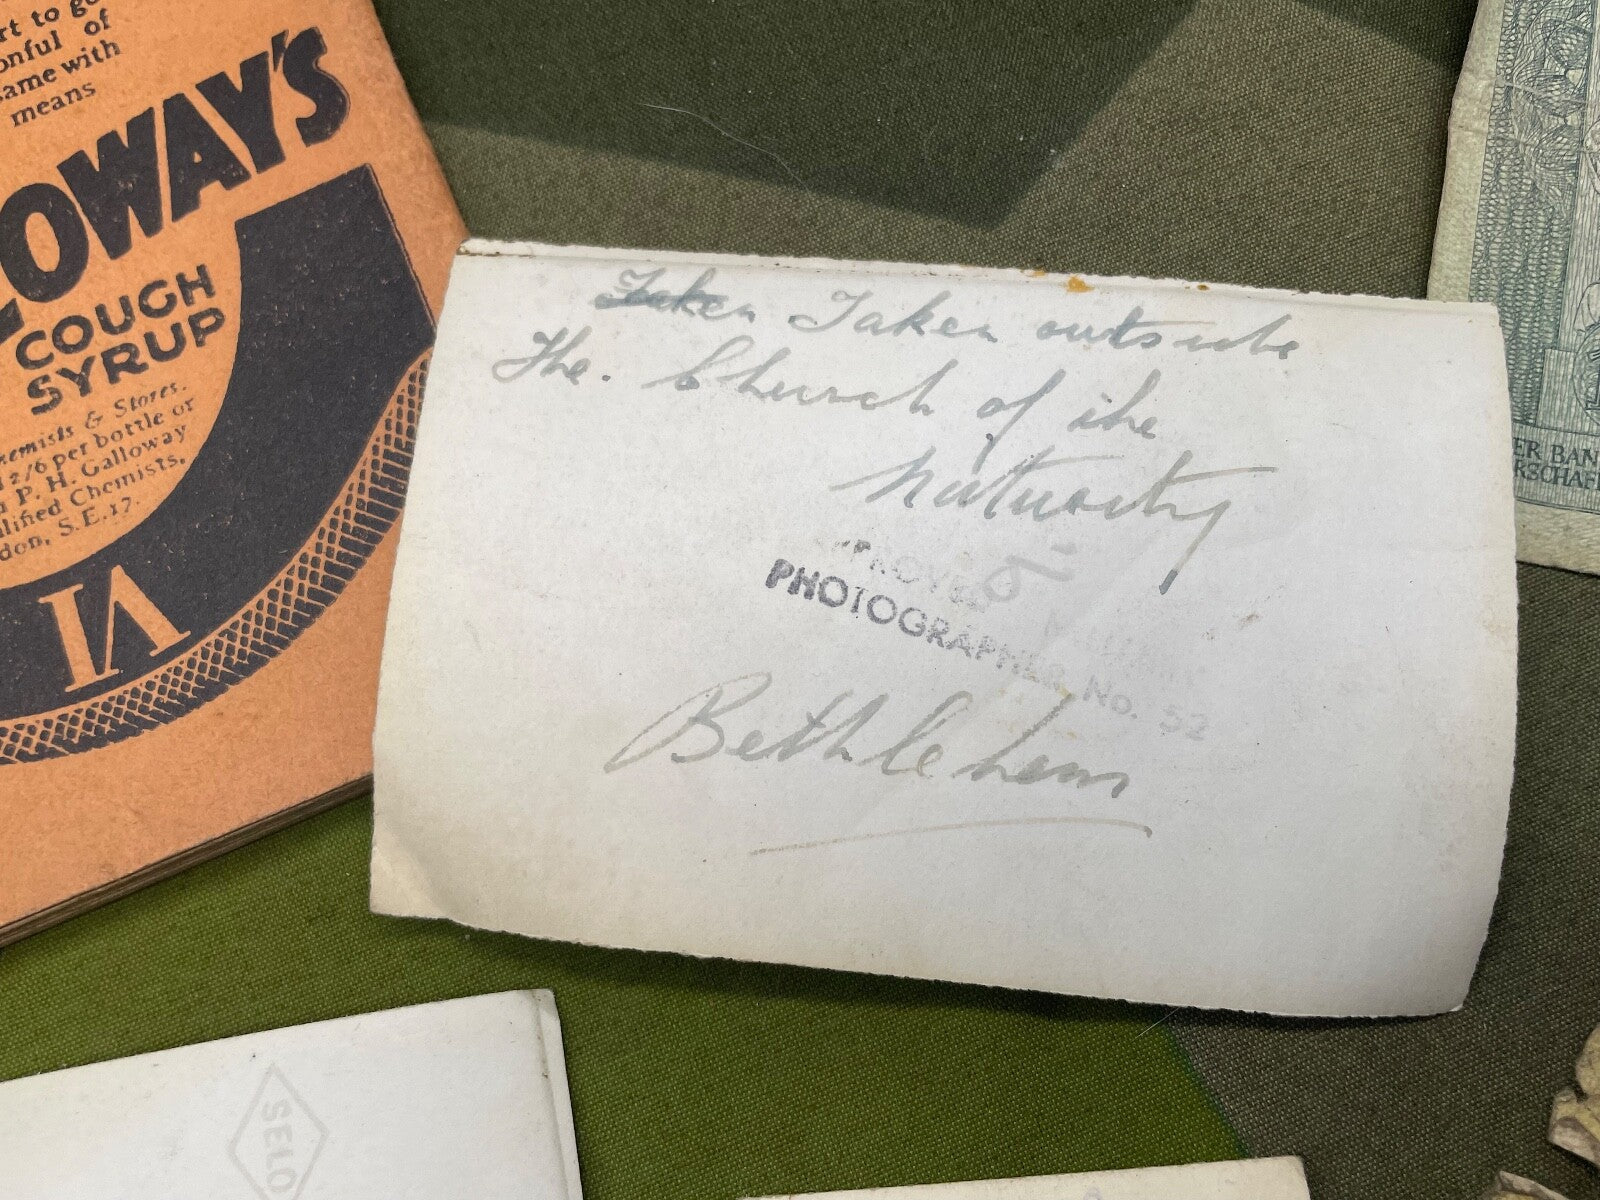 rt to go
onful of
same with
means
LOWAY'S
COUGH
SYRUP
hemists & Stores.
2/6 per bottle or
P. H. Galloway
lified Chemists,
don, S.E.17.
VI
Taken Taken outside
The. Church of the
Nativity
PROVED
PHOTOGRAPHER No. 52
Bethlehem
ER BAN
RSCHAF
SELO